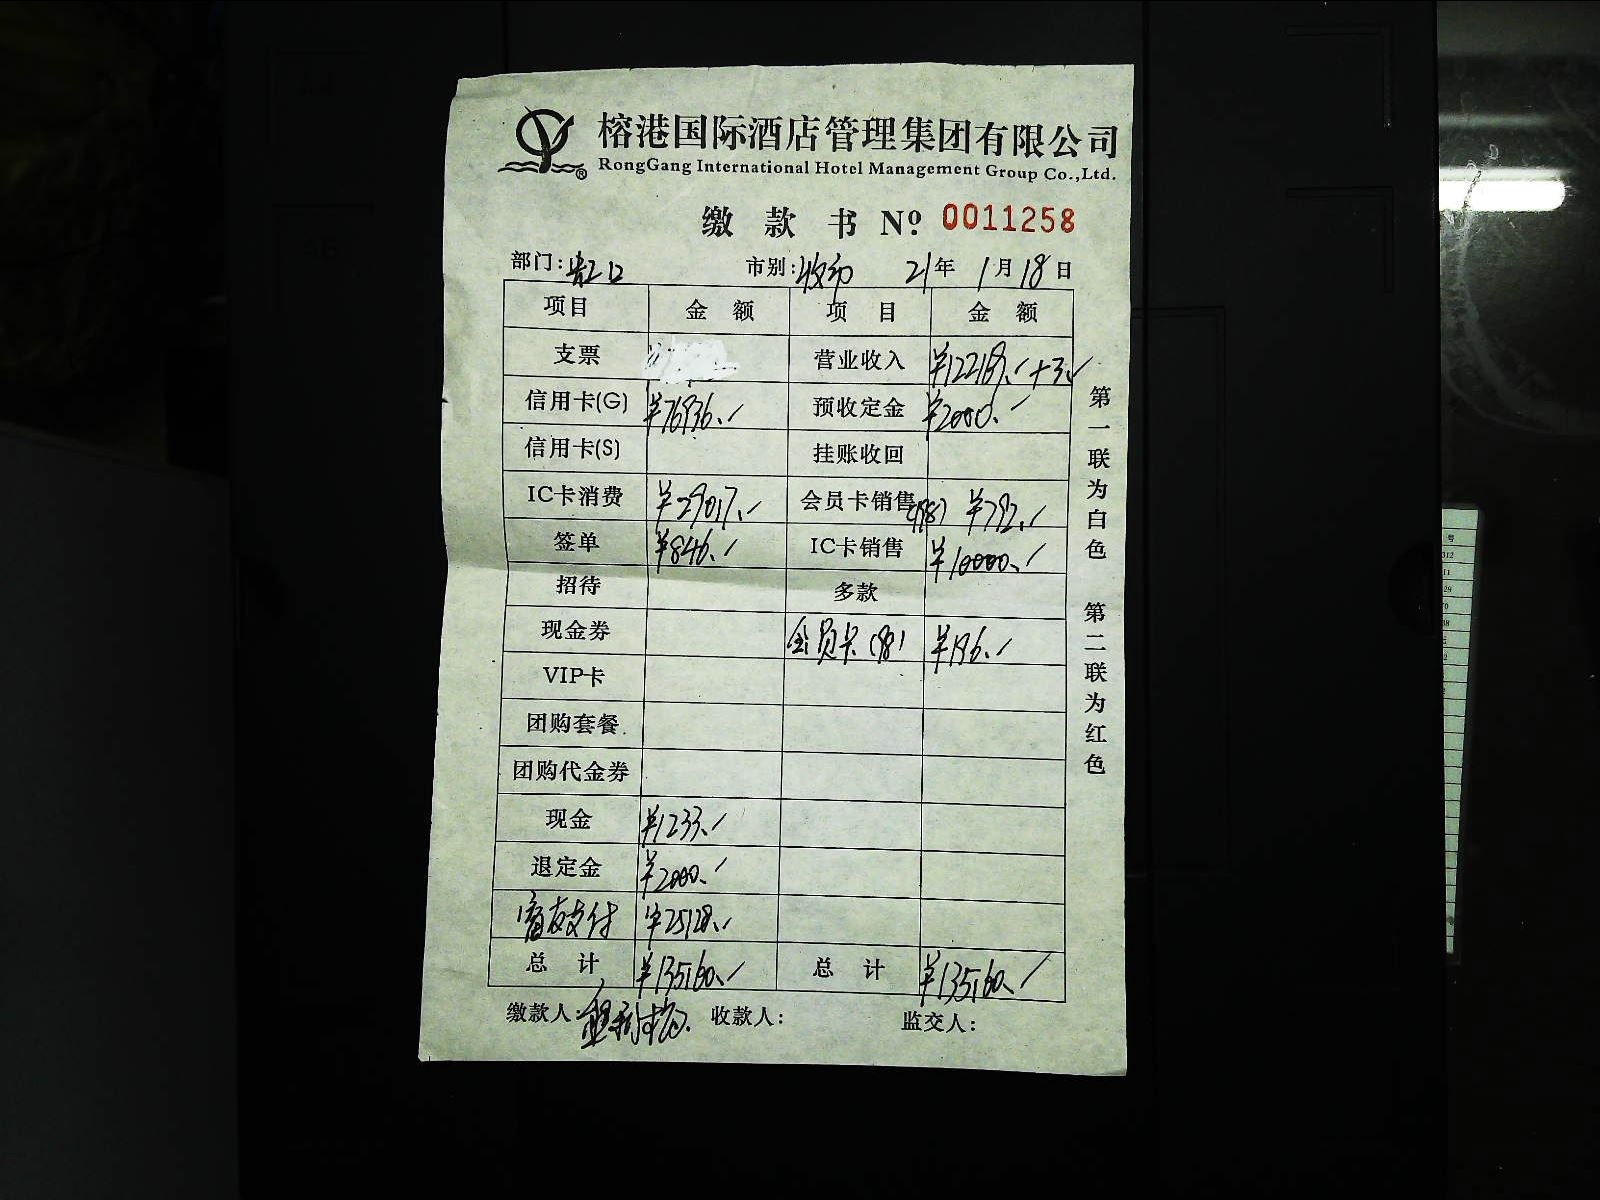 榕港国际酒店管理集团有限公司
RongGang International Hotel Management Group Co.,Ltd.
缴款书 Nº 0011258
部门: 市别: 21年1月18日
项目 金额 项目 金额
支票 营业收入 ¥122169.+3.
信用卡(G) ¥76936. 预收定金 ¥2000.
信用卡(S) 挂账收回
IC卡消费 ¥29017. 会员卡销售(198) ¥792.
签单 ¥846. IC卡销售 ¥10000.
招待 多款
现金券 会员卡(98) ¥196.
VIP卡
团购套餐
团购代金券
现金 ¥1233.
退定金 ¥2000.
富友支付 ¥25128.
总计 ¥135160. 总计 ¥135160.
缴款人: 收款人: 监交人:
第一联为白色 第二联为红色